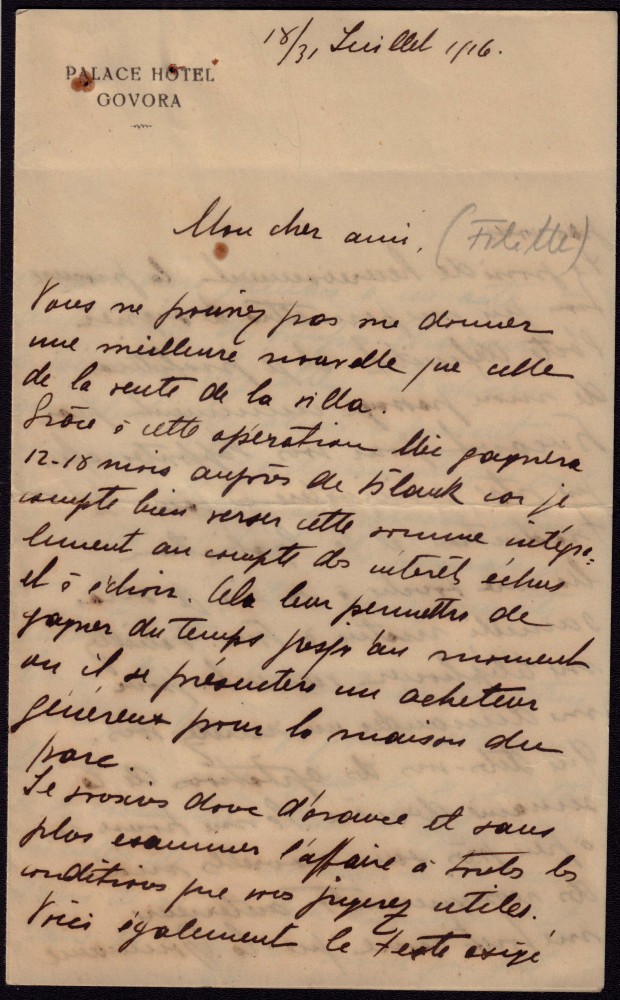 18/31 Juillet 1916.
PALACE HOTEL
GOVORA
Mon cher ami, (Filitti)
Vous ne pouviez pas me donner
une meilleure nouvelle que celle
de la vente de la villa.
Grâce à cette opération Mic gagnera
12-18 mois auprès de Blank car je
compte bien verser cette somme intégra=
lement au compte des intérêts échus
et à échoir. Cela leur permettra de
gagner du temps jusqu'au moment
où il se présentera un acheteur
généreux pour la maison du
parc.
Je souscris donc d'avance et sans
plus examiner l'affaire à toutes les
conditions que vous jugerez utiles.
Voici également le texte exigé